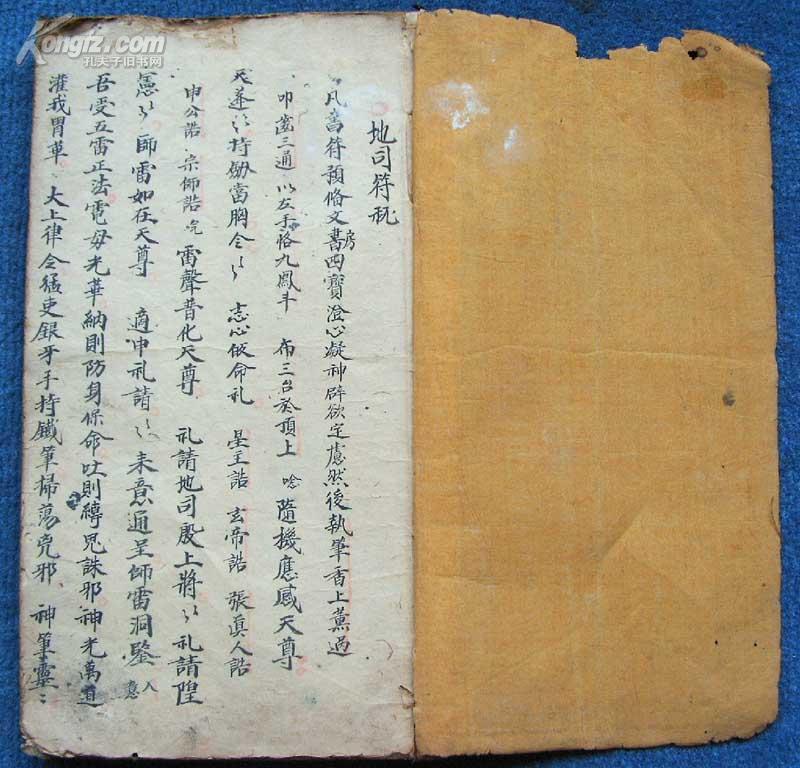 Kongfz.com
孔夫子旧书网
地司符秘
凡書符預偹文房四寶澄心凝神辟欲定慮然後執筆香上薰過
叩齒三通 以左手恪九鳳斗 布三台於頂上 唸 隨機應感天尊
天蓬〻持劾當胸令〻 志心皈命礼 星主誥 玄帝誥 張真人誥
申公誥 宗師誥 雷聲普化天尊 礼請地司殷上將〻礼請陛
憲〻師雷如在天尊 適申礼請〻 未意通呈師雷洞鑒 入意
吾受五雷正法電母光華納則防身保命吐則縛鬼誅邪神光萬道
灌我胃草 大上律令猛吏銀牙手持鐵筆掃蕩兇邪 神筆靈〻